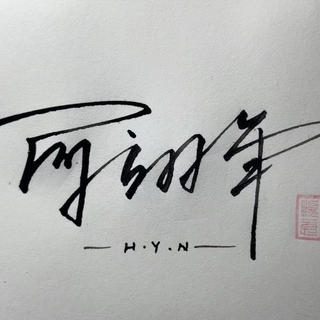 何翊年
H.Y.N